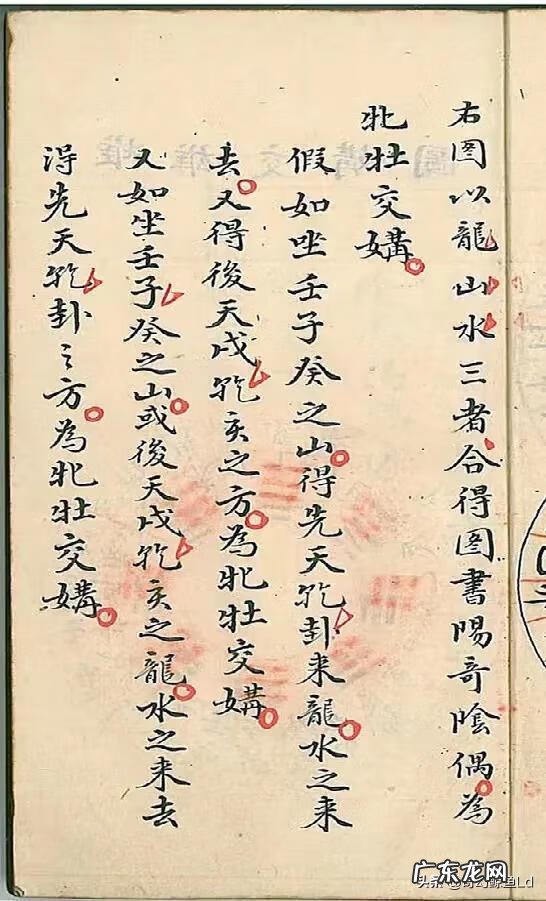 右图以龍山水三者合得图書陽奇陰偶為
牝牡交媾
假如坐壬子癸之山得先天乾卦来龍水之来
去又得後天戌乾亥之方為牝牡交媾
又如坐壬子癸之山或後天戌乾亥之龍水之来去
得先天乾卦之方為牝牡交媾
广东龙网